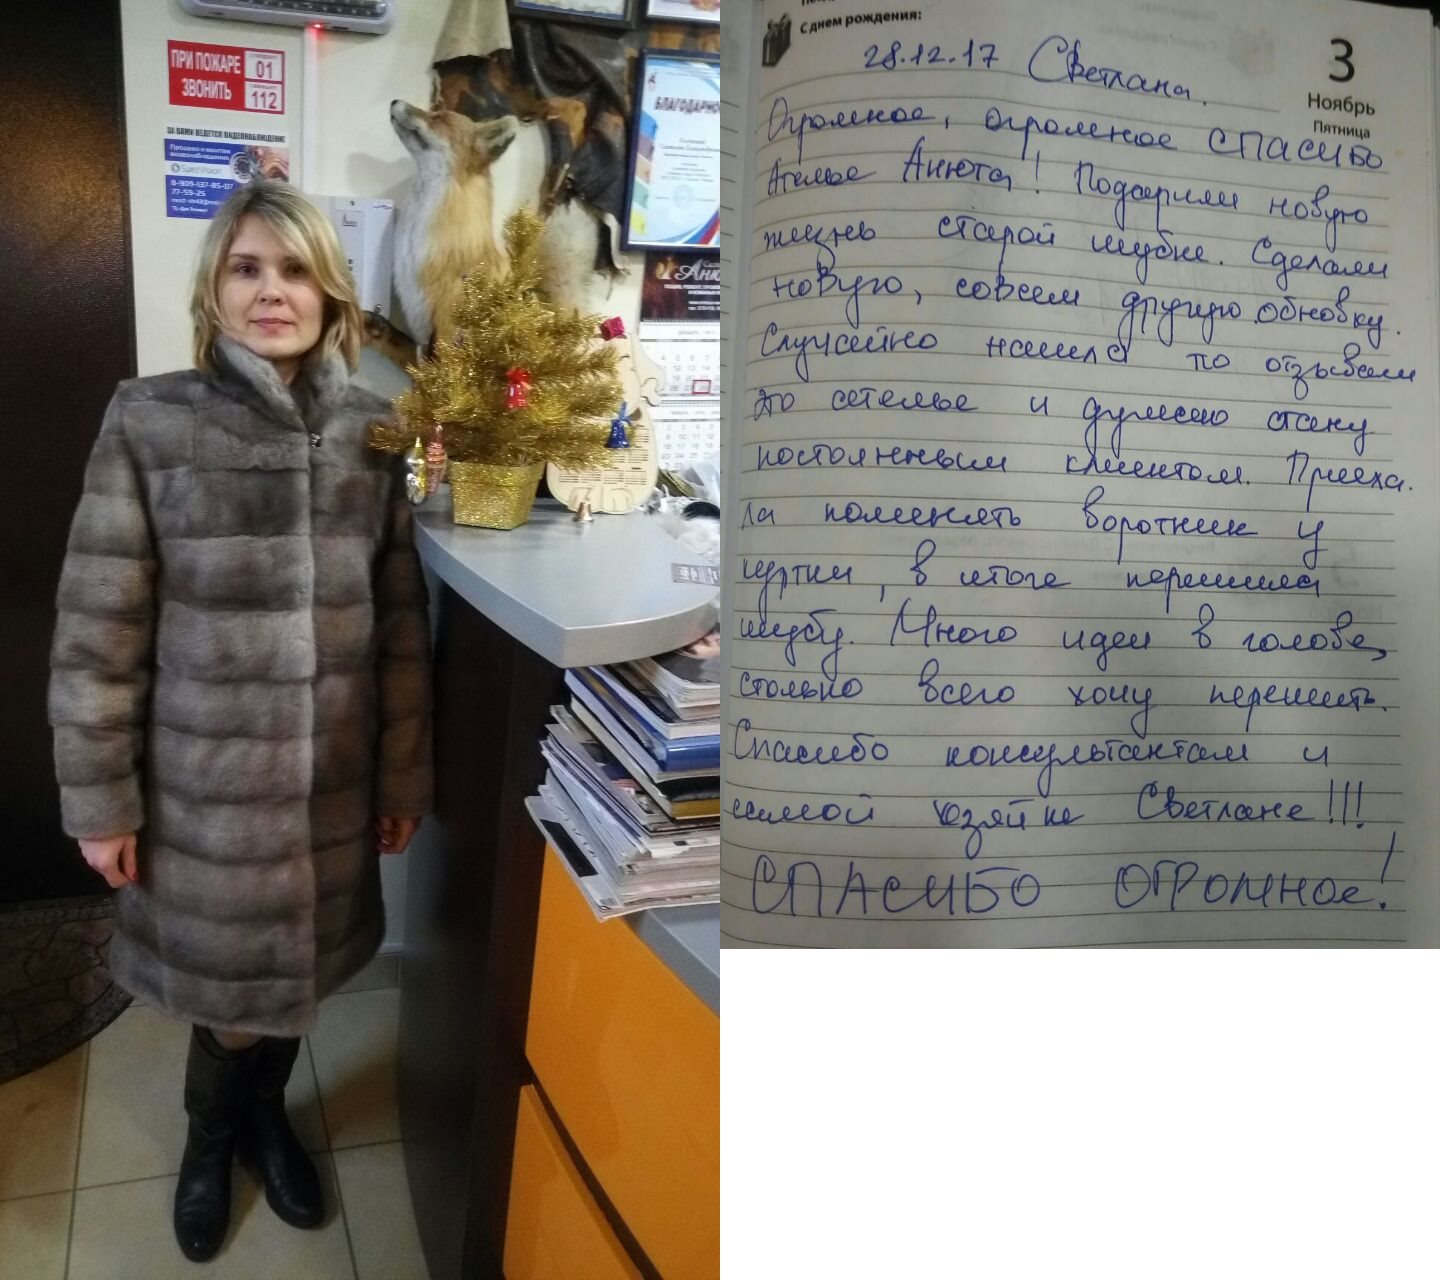 ПРИ ПОЖАРЕ
ЗВОНИТЬ
01
112
ЗА ВАМИ ВЕДЕТСЯ ВИДЕОНАБЛЮДЕНИЕ
Продажа и монтаж
видеонаблюдения
SpezVision
8-909-137-85-07
77-59-25
БЛАГОДАРНО
Аню
С днем рождения:
3
Ноябрь
Пятница
28.12.17 Светлана.
Огромное, огромное СПАСИБО
Ателье Анюта! Подарили новую
жизнь старой шубке. Сделали
новую, совсем другую обновку.
Случайно нашла по отзывам
это ателье и думаю стану
постоянным клиентом. Приеха.
ла поменять воротник у
куртки, в итоге перешила
шубу. Много идей в голове,
столько всего хочу перешить.
Спасибо консультантам и
самой хозяйке Светлане!!!
СПАСИБО ОГРОМНОЕ!